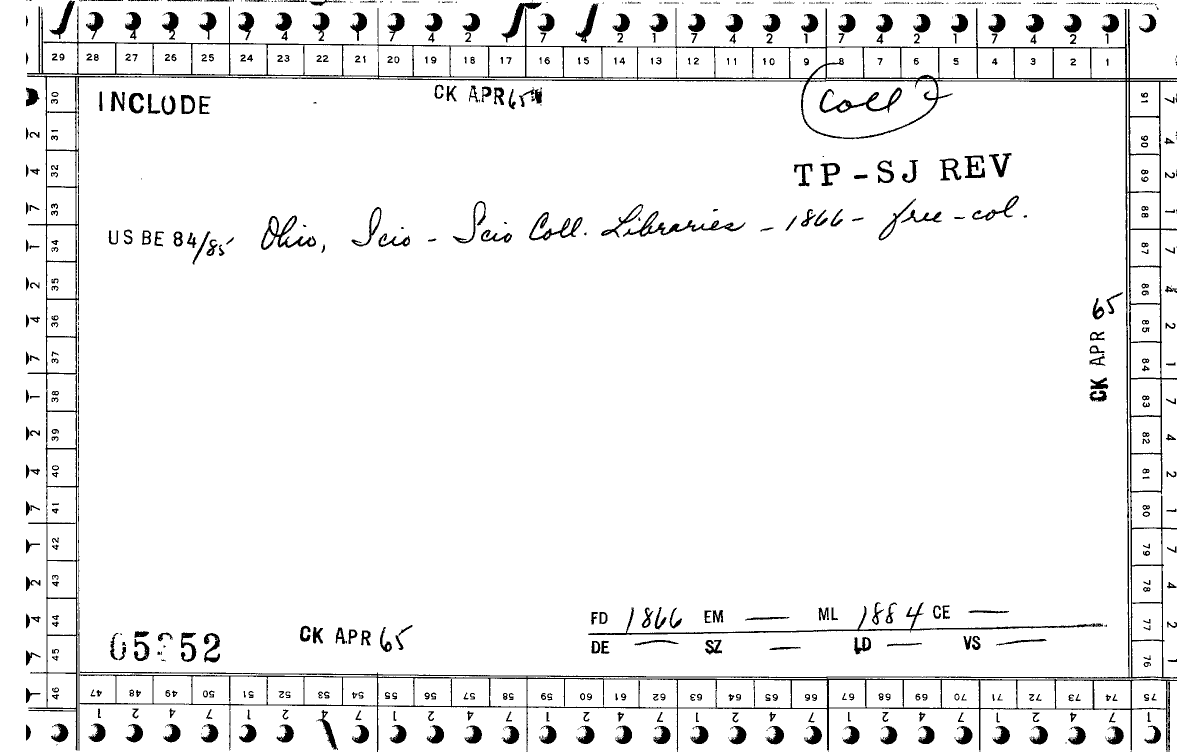 7 4 2 1 7 4 2 1 7 4 2 1 7 4 2 1 7 4 2 1 7 4 2 1
29 28 27 26 25 24 23 22 21 20 19 18 17 16 15 14 13 12 11 10 9 8 7 6 5 4 3 2 1
INCLUDE
CK APR 65
Coll ?
TP-SJ REV
US BE 84/85 Ohio, Scio - Scio Coll. Libraries - 1866 - free - col.
CK APR 65
FD 1866 EM — ML 1884 CE —
DE — SZ — LD — VS —
CK APR 65
30 31 32 33 34 35 36 37 38 39 40 41 42 43 44 45 46
91 90 89 88 87 86 85 84 83 82 81 80 79 78 77 76 75
47 48 49 50 51 52 53 54 55 56 57 58 59 60 61 62 63 64 65 66 67 68 69 70 71 72 73 74 75